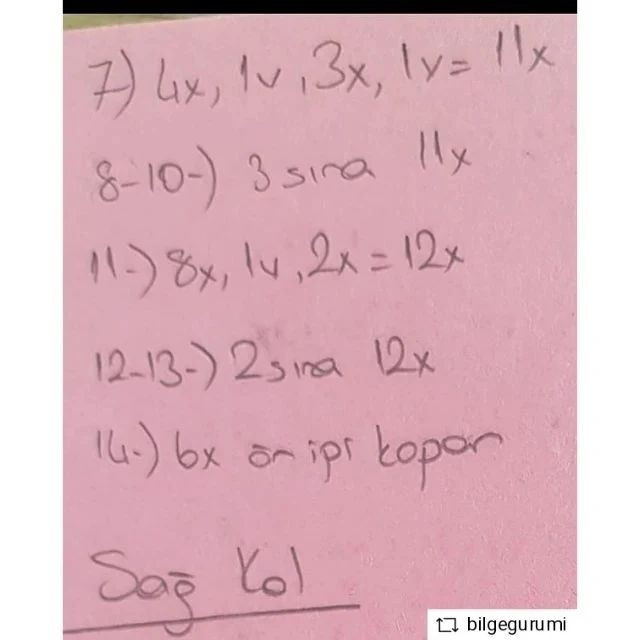 7-) 4x, 1v, 3x, 1v = 11x
8-10-) 3 sıra 11x
11-) 8x, 1v, 2x = 12x
12-13-) 2 sıra 12x
14-) 6x ör ipi kopar
Sağ Kol
bilgegurumi